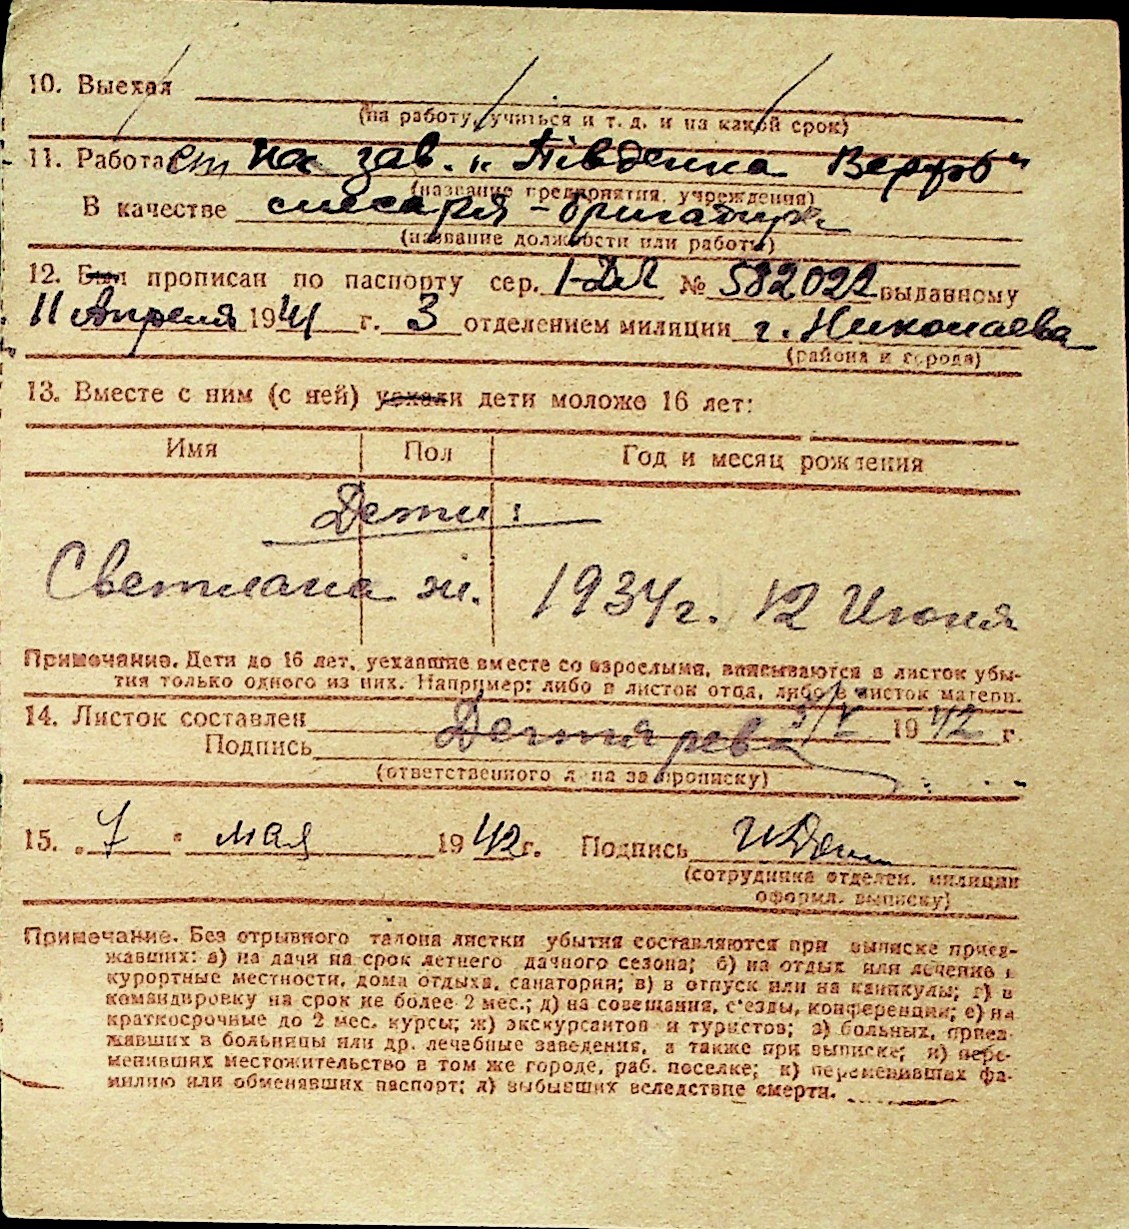 10. Выехал
(на работу, учиться и т. д. и на какой срок)
11. Работает на зав. „Південна Верфь"
(название предприятия, учреждения)
В качестве слесаря-бригадира
(название должности или работы)
12. Был прописан по паспорту сер. № 582022 выданному
11 Апреля 1941 г. 3 отделением милиции г. Николаева
(района и города)
13. Вместе с ним (с ней) уехали дети моложе 16 лет:
Имя Пол Год и месяц рождения
Дети:
Светлана ж. 1934г. 12 Июня
Примечание. Дети до 16 лет, уехавшие вместе со взрослыми, вписываются в листок убы-
тия только одного из них. Например: либо в листок отца, либо в листок матери.
14. Листок составлен 3/V 1942 г.
Подпись Дегтярева
(ответственного л на за прописку)
15. „7" мая 1942г. Подпись
(сотрудника отделен. милиции
оформл. выписку)
Примечание. Без отрывного талона листки убытия составляются при выписке приез-
жавших: а) на дачи на срок летнего дачного сезона; б) на отдых или лечение в
курортные местности, дома отдыха, санатории; в) в отпуск или на каникулы; г) в
командировку на срок не более 2 мес.; д) на совещания, с'езды, конференции; е) на
краткосрочные до 2 мес. курсы; ж) экскурсантов и туристов; з) больных, приез-
жавших в больницы или др. лечебные заведения, а также при выписке; и) пере-
менивших местожительство в том же городе, раб. поселке; к) переменивших фа-
милию или обменявших паспорт; л) выбывших вследствие смерти.